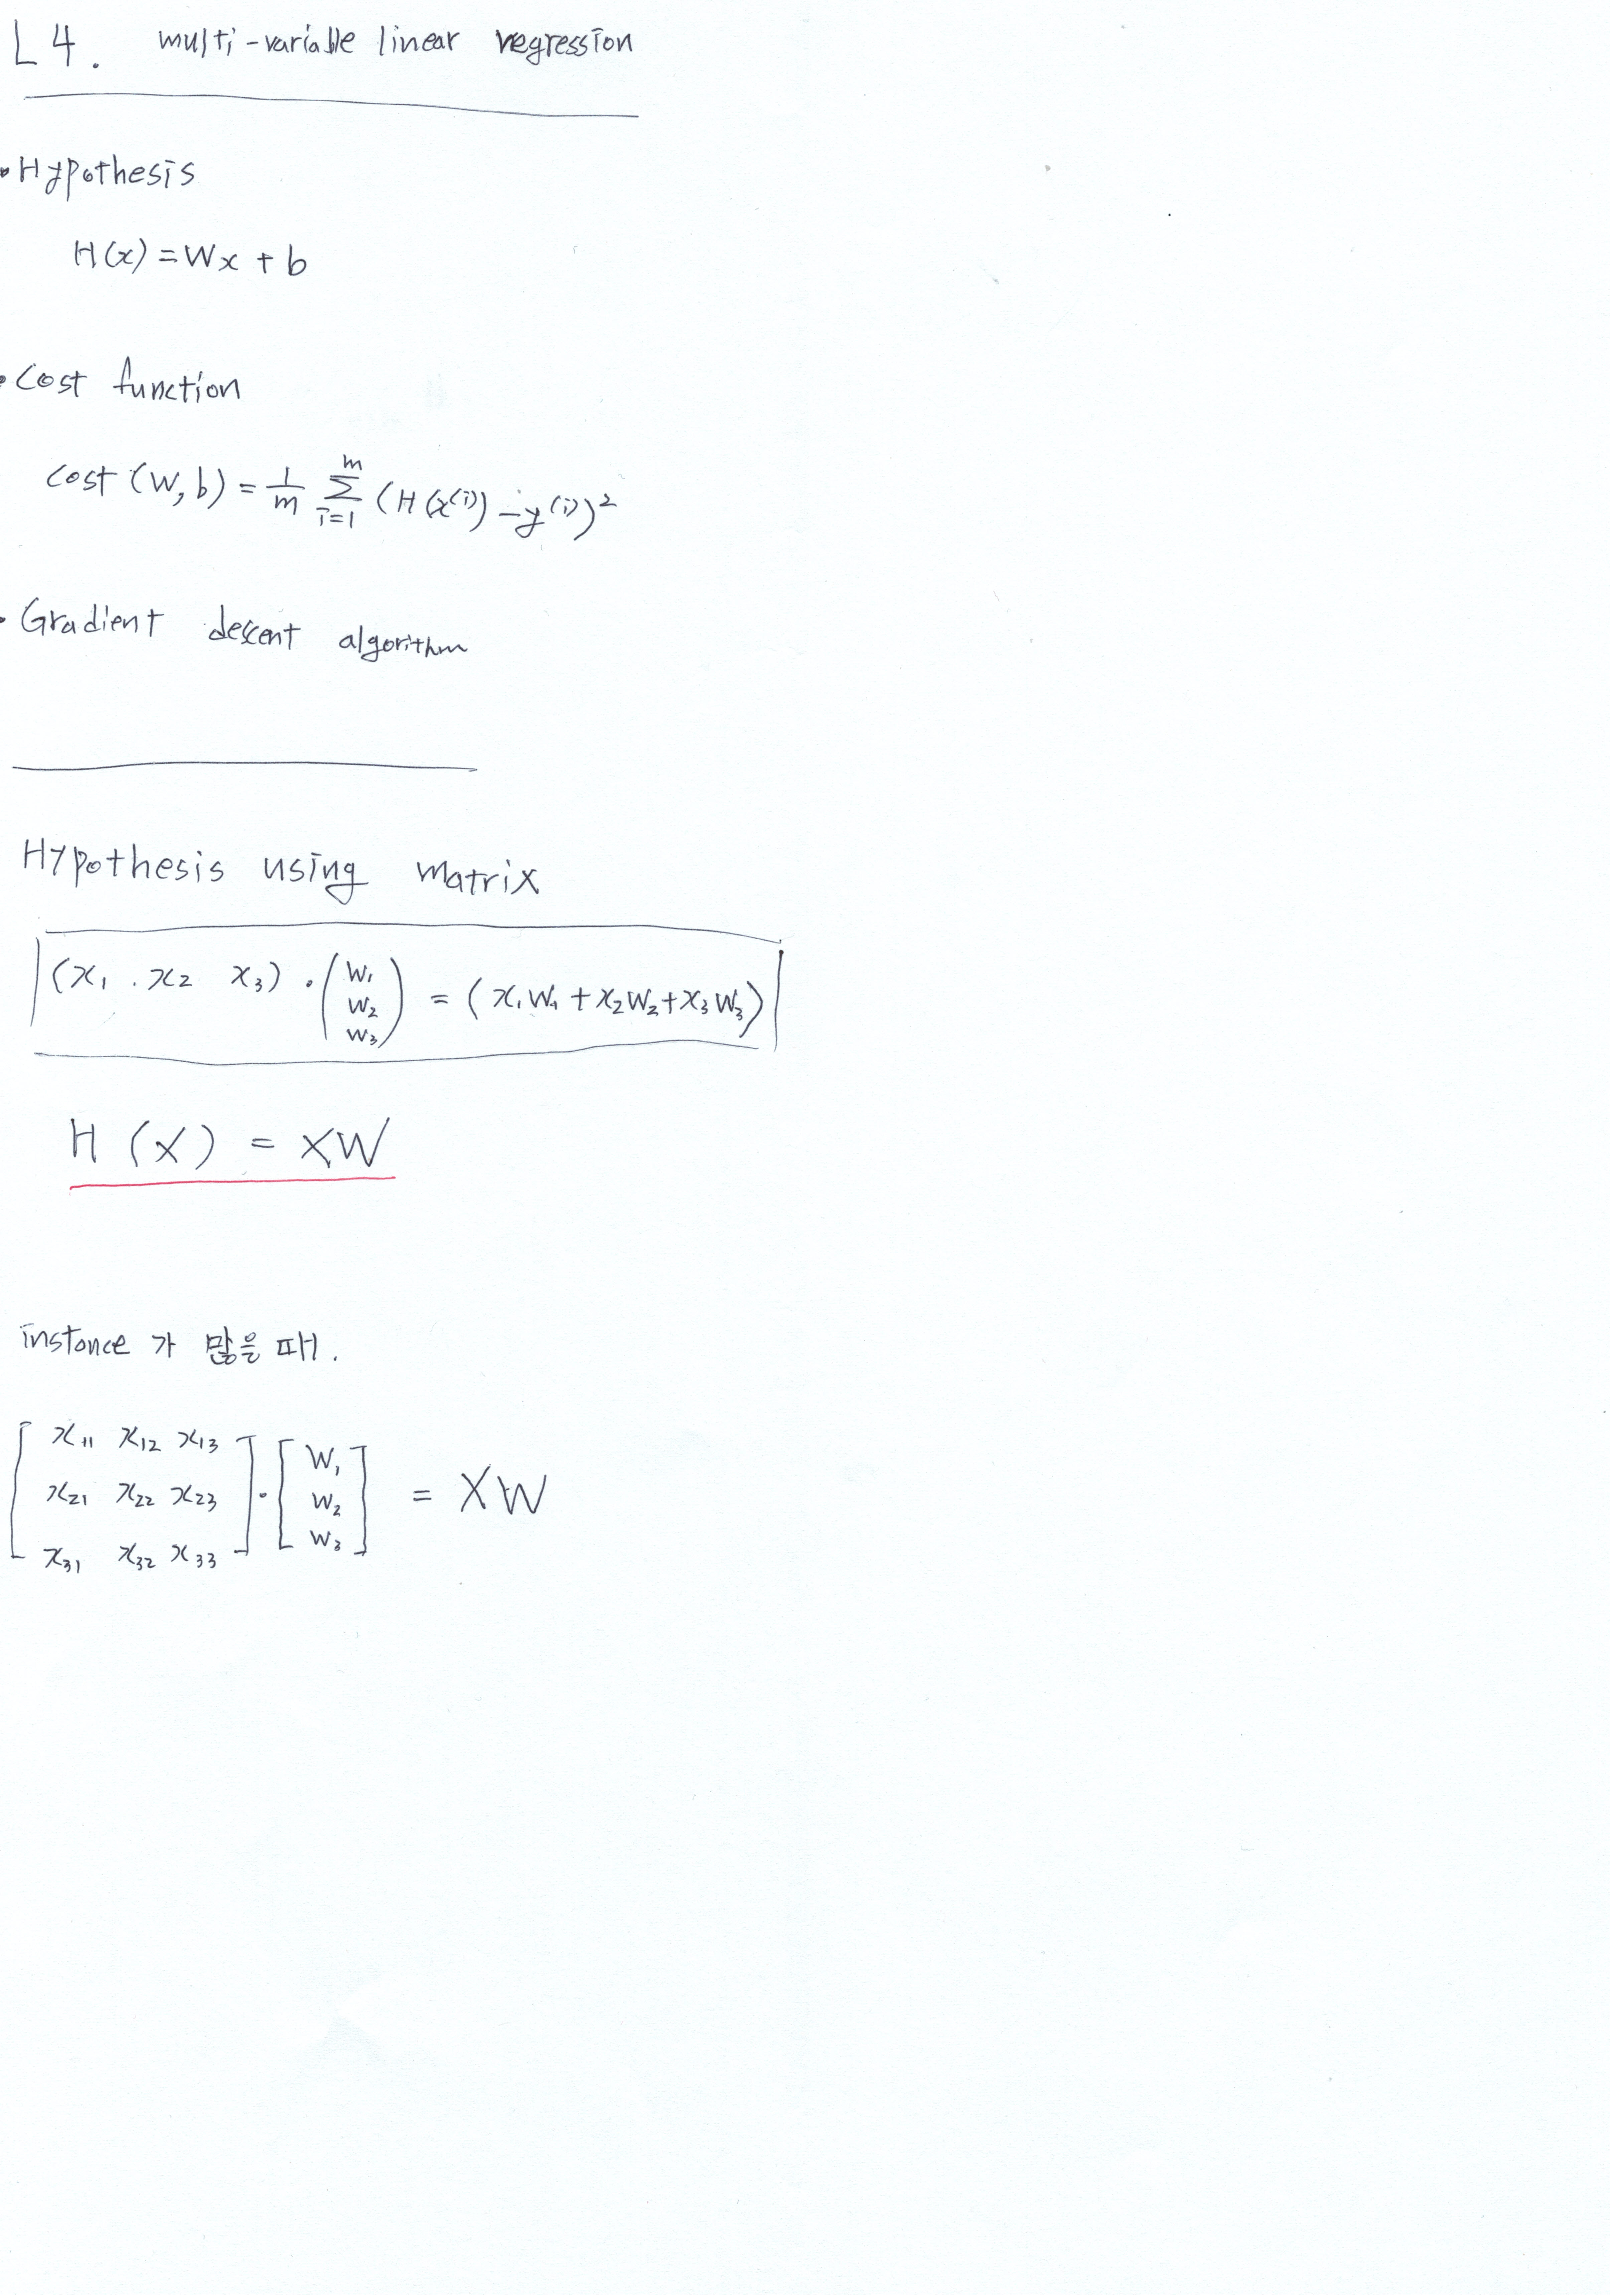 L4. multi-variable linear regression
• Hypothesis
H(x) = Wx + b
• Cost function
cost (W, b) = 1/m Σ_{i=1}^{m} (H(x^(i)) - y^(i))²
• Gradient descent algorithm
Hypothesis using matrix
(x₁ . x₂ x₃) · (w₁ w₂ w₃) = (x₁w₁ + x₂w₂ + x₃w₃)
H (X) = XW
instance 가 많을 때.
[x₁₁ x₁₂ x₁₃
x₂₁ x₂₂ x₂₃
x₃₁ x₃₂ x₃₃] · [w₁ w₂ w₃] = XW